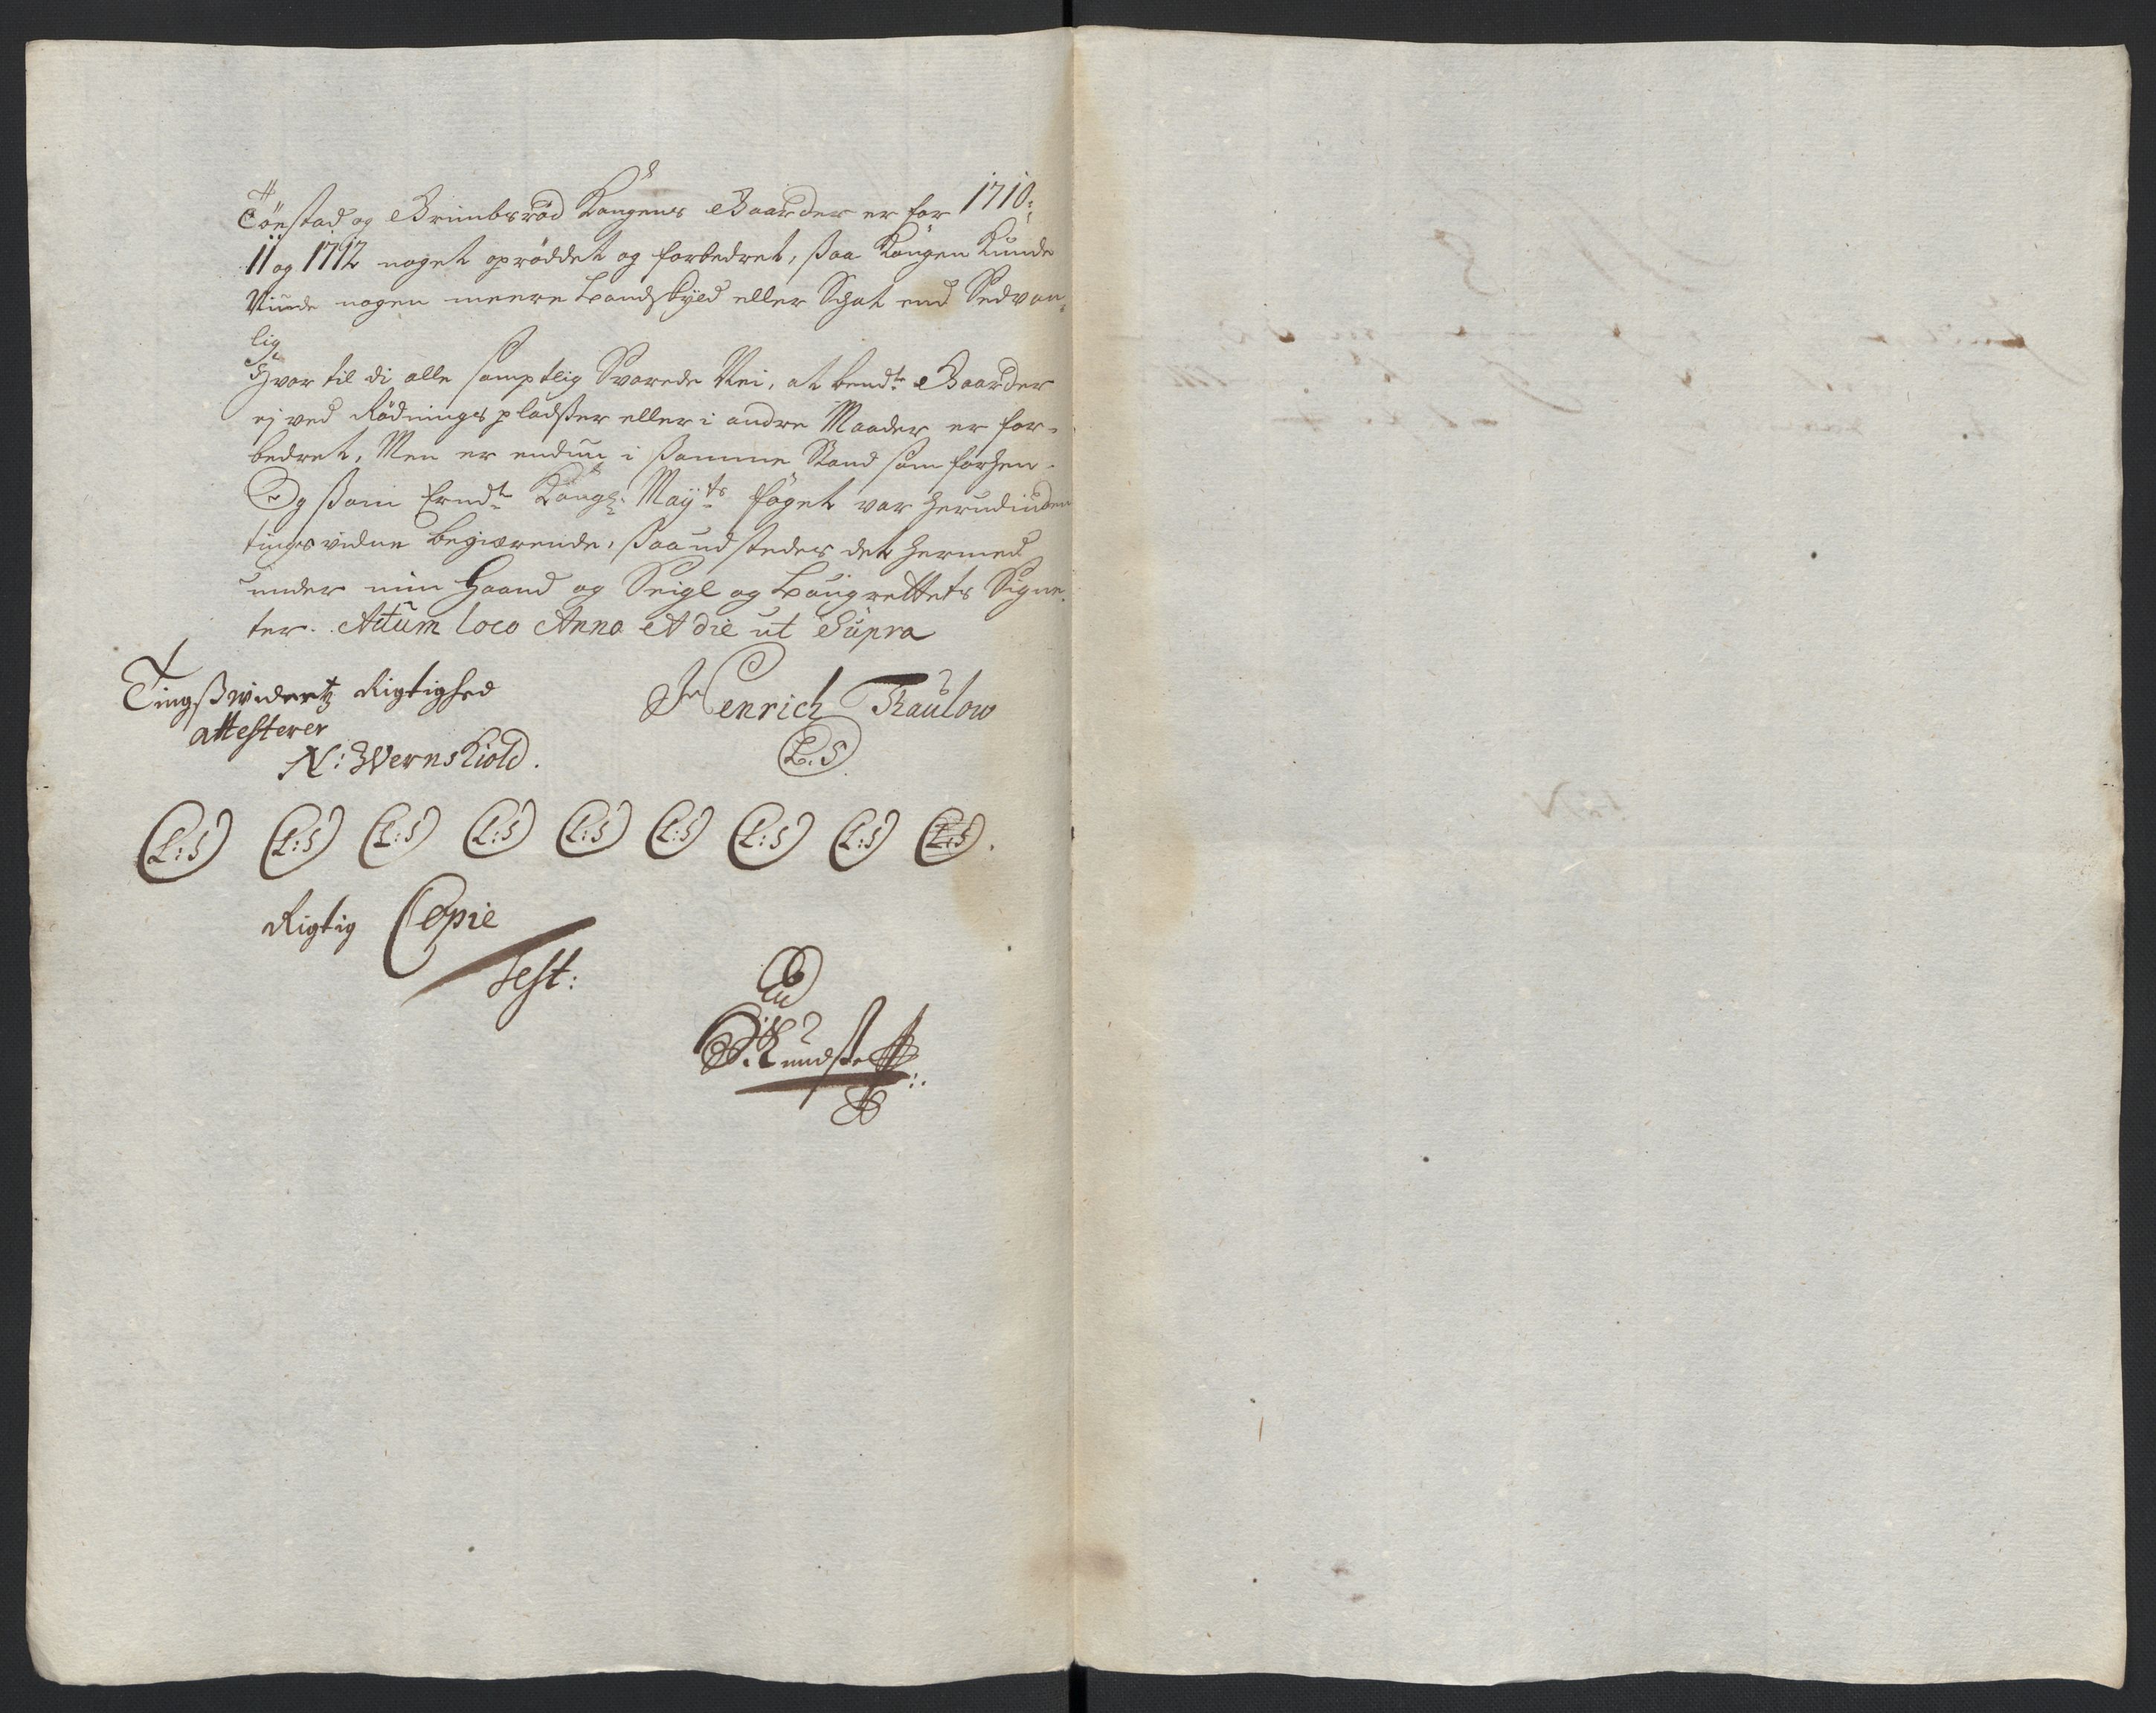 Töestad og Grimbsrød Kongens Gaarder er for 1710:
11 og 1712 noget oprøddet og forbedret, saa Kongen kunde
Niude nogen meere Landskyld eller Schat end Sedvan-
lig
Hvor til di alle samptlig Svarede Nei, at bemdte Gaarder
ej ved Rødnings pladser eller i andre Maader er for-
bedret, Men er endnu i samme Stand som forhen.
Og som Ermdte Kongl: Mayts foget var herudinden
tingsvidne begierende, saa udstedes det hermed
under min Haand og Seigl og Laugrettets Signe-
ter. Actum loco Anno et die ut Supra
Tingswidnetz Rigtighed
attesterer
N: Wernskiold.
Henrich Thaulow
L.S
L:S L:S L:S L:S L:S L:S L:S L:S L:S.
Rigtig Copie
Test: